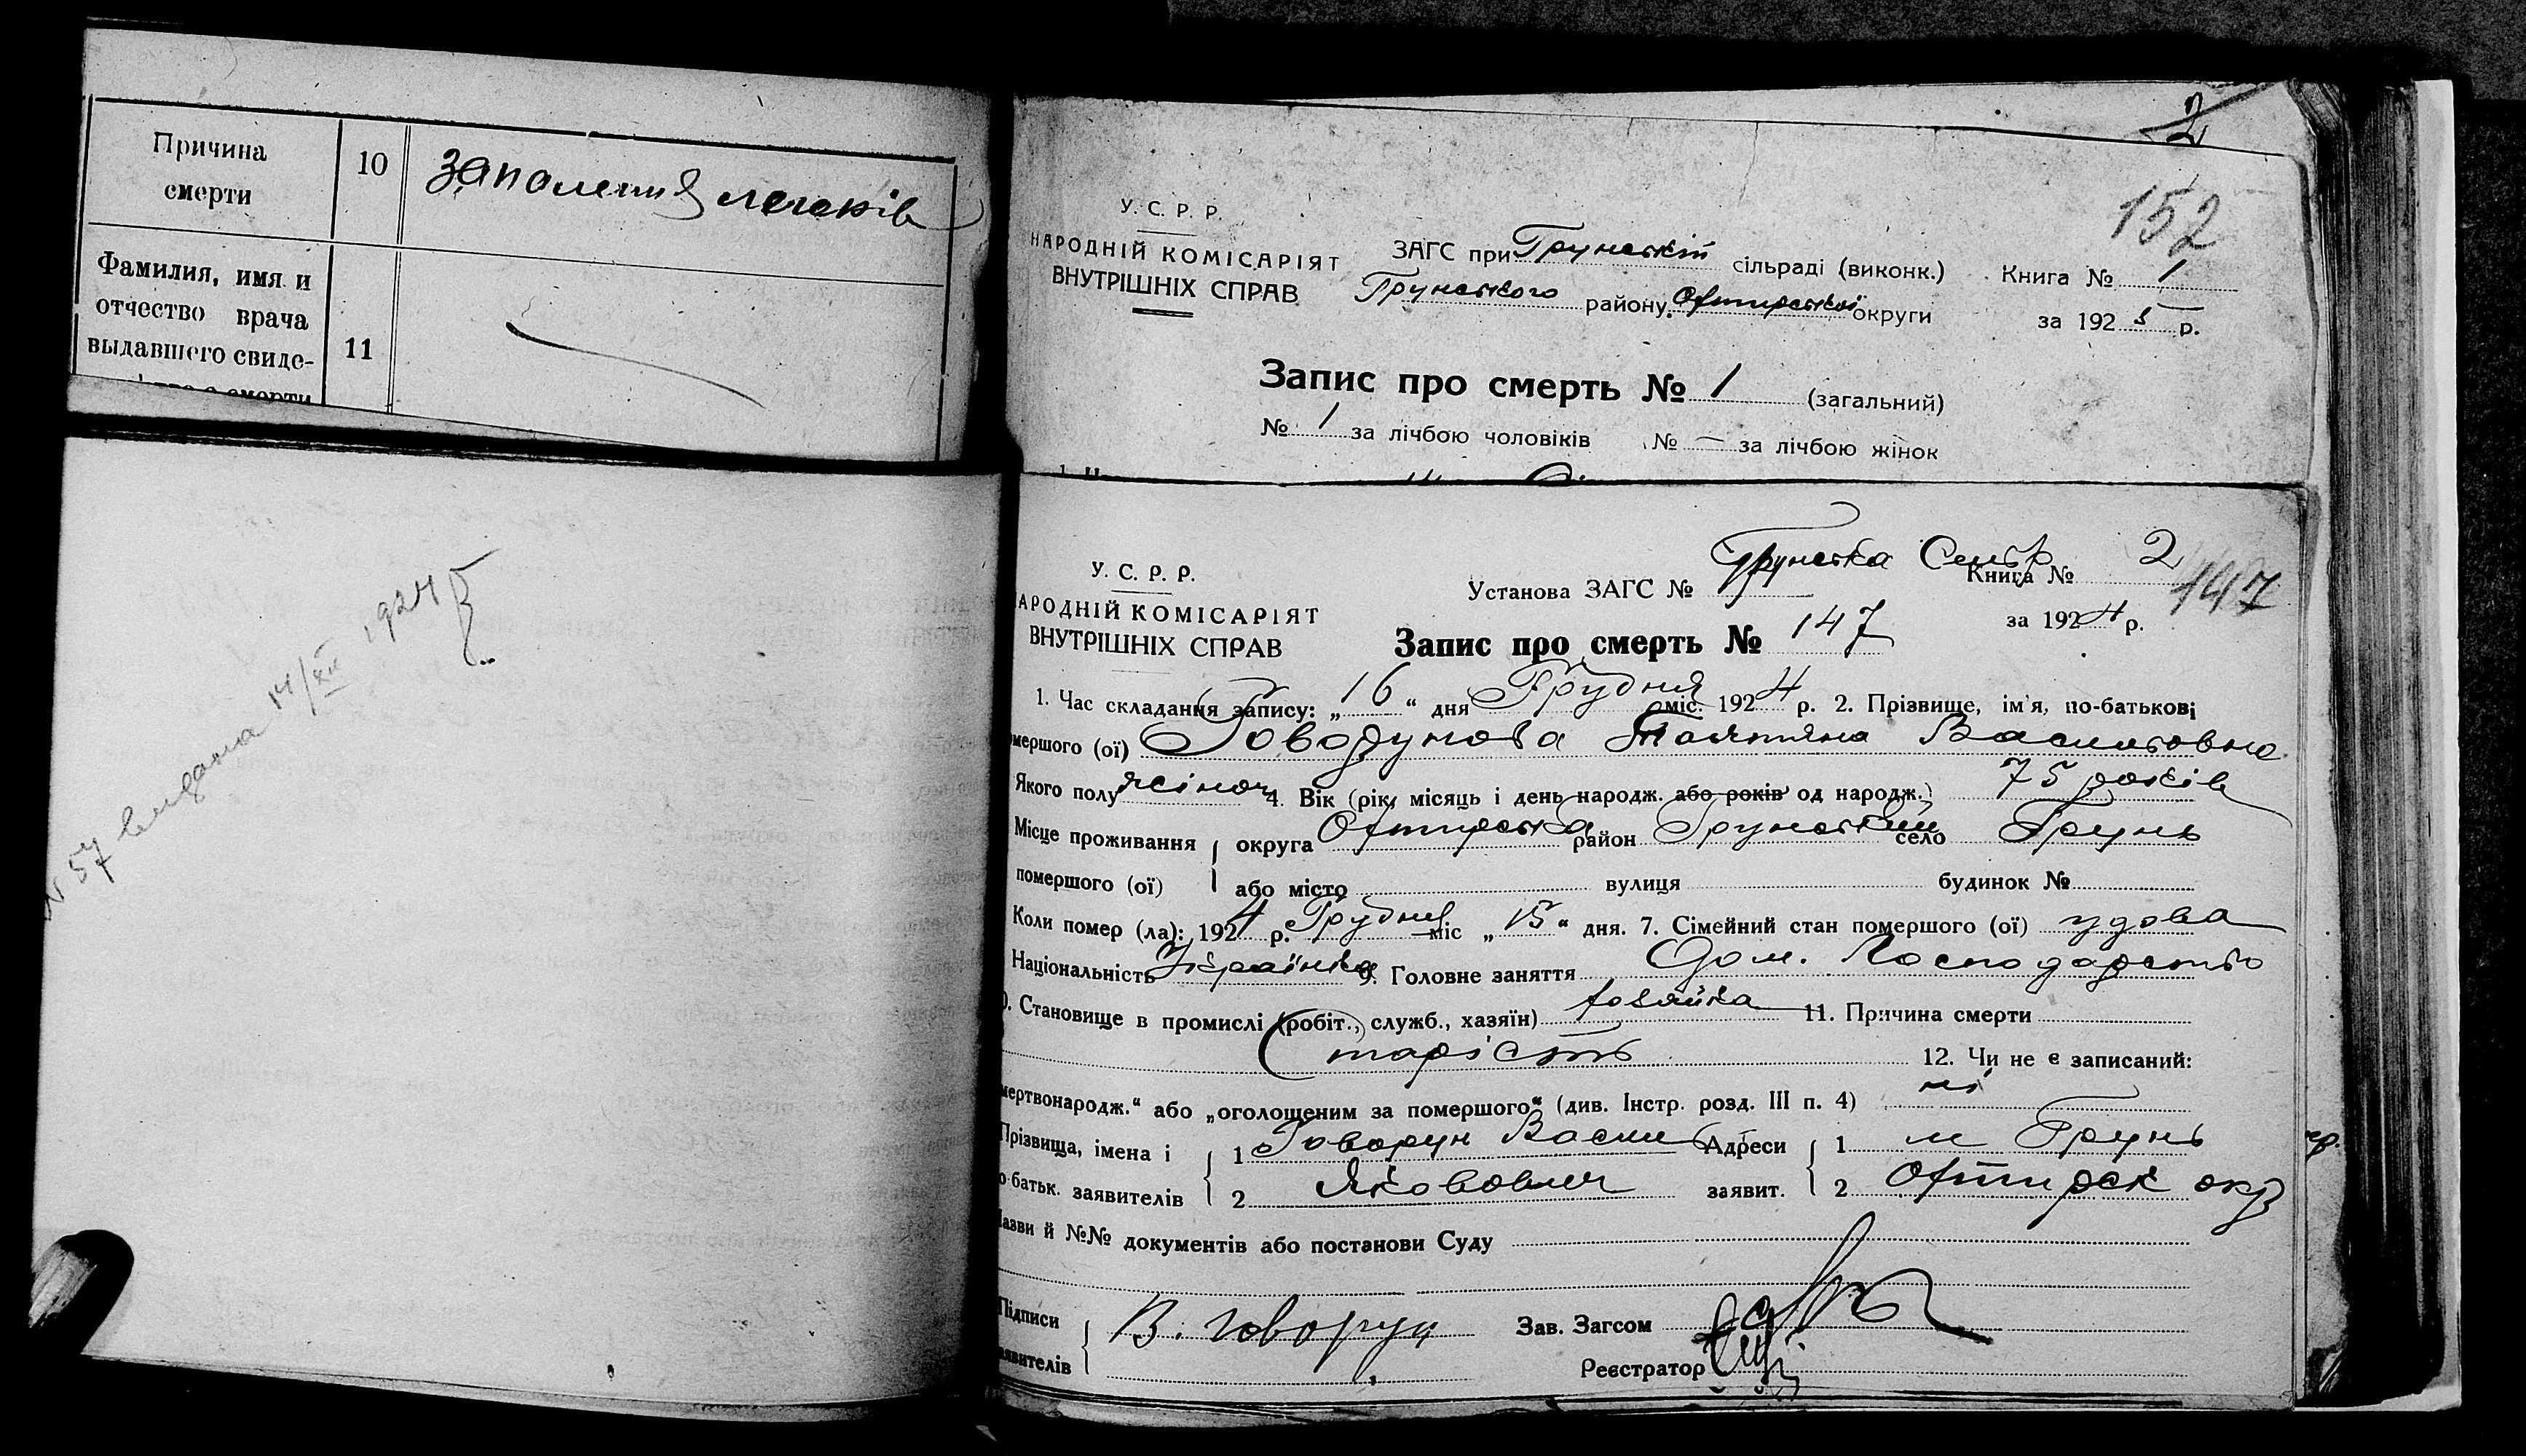 Причина смерти 10 запалення легенів
Фамилия, имя и отчество врача выдавшего свиде- 11
смерти
2
152
У. С. Р. Р.
НАРОДНІЙ КОМІСАРІЯТ
ВНУТРІШНІХ СПРАВ
ЗАГС при Грунській сільраді (виконк.) Книга № 1
Грунського району Охтирської округи за 1925 р.
Запис про смерть № 1 (загальний)
№ 1 за лічбою чоловіків № — за лічбою жінок
N 57 видана 14/XII 1924
У. С. Р. Р.
АРОДНІЙ КОМІСАРІЯТ
ВНУТРІШНІХ СПРАВ
Установа ЗАГС № Грунська Книга № 2
147
за 1924 р.
Запис про смерть № 147
1. Час складання запису: „16“ дня Грудня міс. 1924 р. 2. Прізвище, ім'я, по-батькові
мершого (ої) Говорунова Татяна Василовна
Якого полу жіноч 4. Вік (рік, місяць і день народж. або років од народж.) 75 років
Місце проживання округа Охтирська район Грунський село Грунь
помершого (ої) або місто вулиця будинок №
Коли помер (ла): 1924 р. Грудня міс „15“ дня. 7. Сімейний стан помершого (ої) удова
Національність Українка 9. Головне заняття Дом. Господарство
0. Становище в промислі (робіт., служб., хазяїн) хазяйка 11. Причина смерти
старість 12. Чи не є записаний:
мертвонародж.“ або „оголощеним за помершого“ (див. Інстр. розд. III п. 4) ні
Прізвища, імена і 1 Говорун Васил Адреси 1 м Грунь
о-батьк. заявителів 2 Яковович заявит. 2 Охтирск окр
Назви й №№ документів або постанови Суду
Підписи В. Говорун Зав. Загсом
аявителів Реєстратор